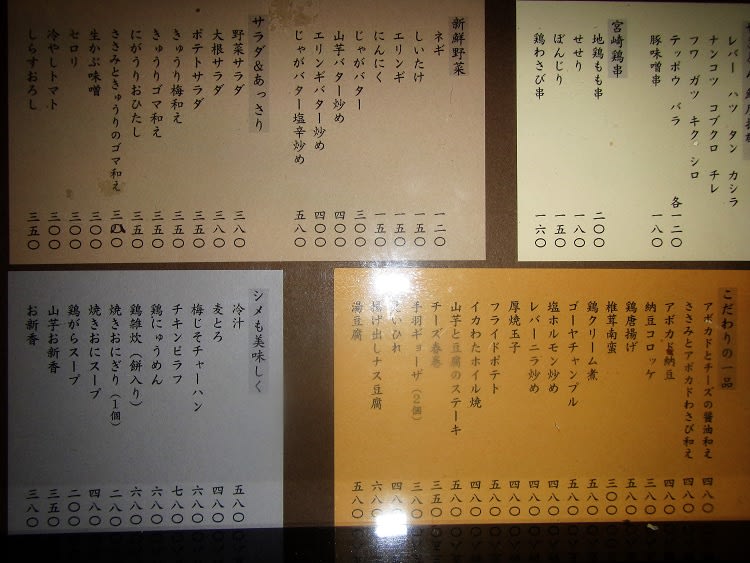 レバー ハツ タン カシラ
ナンコツ コブクロ チレ
フワ ガツ キク シロ
テッポウ バラ 各一二〇
豚味噌串 一八〇
宮崎鶏串
地鶏もも串 二〇〇
せせり 一八〇
ぼんじり 一五〇
鶏わさび串 一六〇
新鮮野菜
ネギ 一二〇
しいたけ 一五〇
エリンギ 一五〇
にんにく 一五〇
じゃがバター 三〇〇
山芋バター炒め 四〇〇
エリンギバター炒め 四〇〇
じゃがバター塩辛炒め 五八〇
サラダ&あっさり
野菜サラダ 三八〇
大根サラダ 三八〇
ポテトサラダ 三五〇
きゅうり梅和え 三五〇
きゅうりゴマ和え 三五〇
にがうりおひたし 三五〇
ささみときゅうりのゴマ和え 三八〇
生かぶ味噌 三〇〇
セロリ 三〇〇
冷やしトマト 三〇〇
しらすおろし 三五〇
こだわりの一品
アボカドとチーズの醤油和え 四八〇
ささみとアボカドわさび和え 四八〇
アボカド納豆 四八〇
納豆コロッケ 三八〇
鶏唐揚げ 五八〇
椎茸南蛮 三〇〇
鶏クリーム煮 五八〇
ゴーヤチャンプル 五八〇
塩ホルモン炒め 四八〇
レバーニラ炒め 四八〇
厚焼玉子 四八〇
フライドポテト 四八〇
イカわたホイル焼 五八〇
山芋と豆腐のステーキ 五八〇
チーズ春巻 四八〇
手羽ギョーザ(2個) 三八〇
えいひれ 四八〇
揚げ出しナス豆腐 六八〇
湯豆腐 五八〇
シメも美味しく
冷汁 五八〇
麦とろ 四八〇
梅じそチャーハン 六八〇
チキンピラフ 七八〇
鶏にゅうめん 六八〇
鶏雑炊(餅入り) 六八〇
焼きおにぎり(1個) 二八〇
焼きおにスープ 四八〇
鶏がらスープ 二〇〇
山芋お新香 三五〇
お新香 三八〇